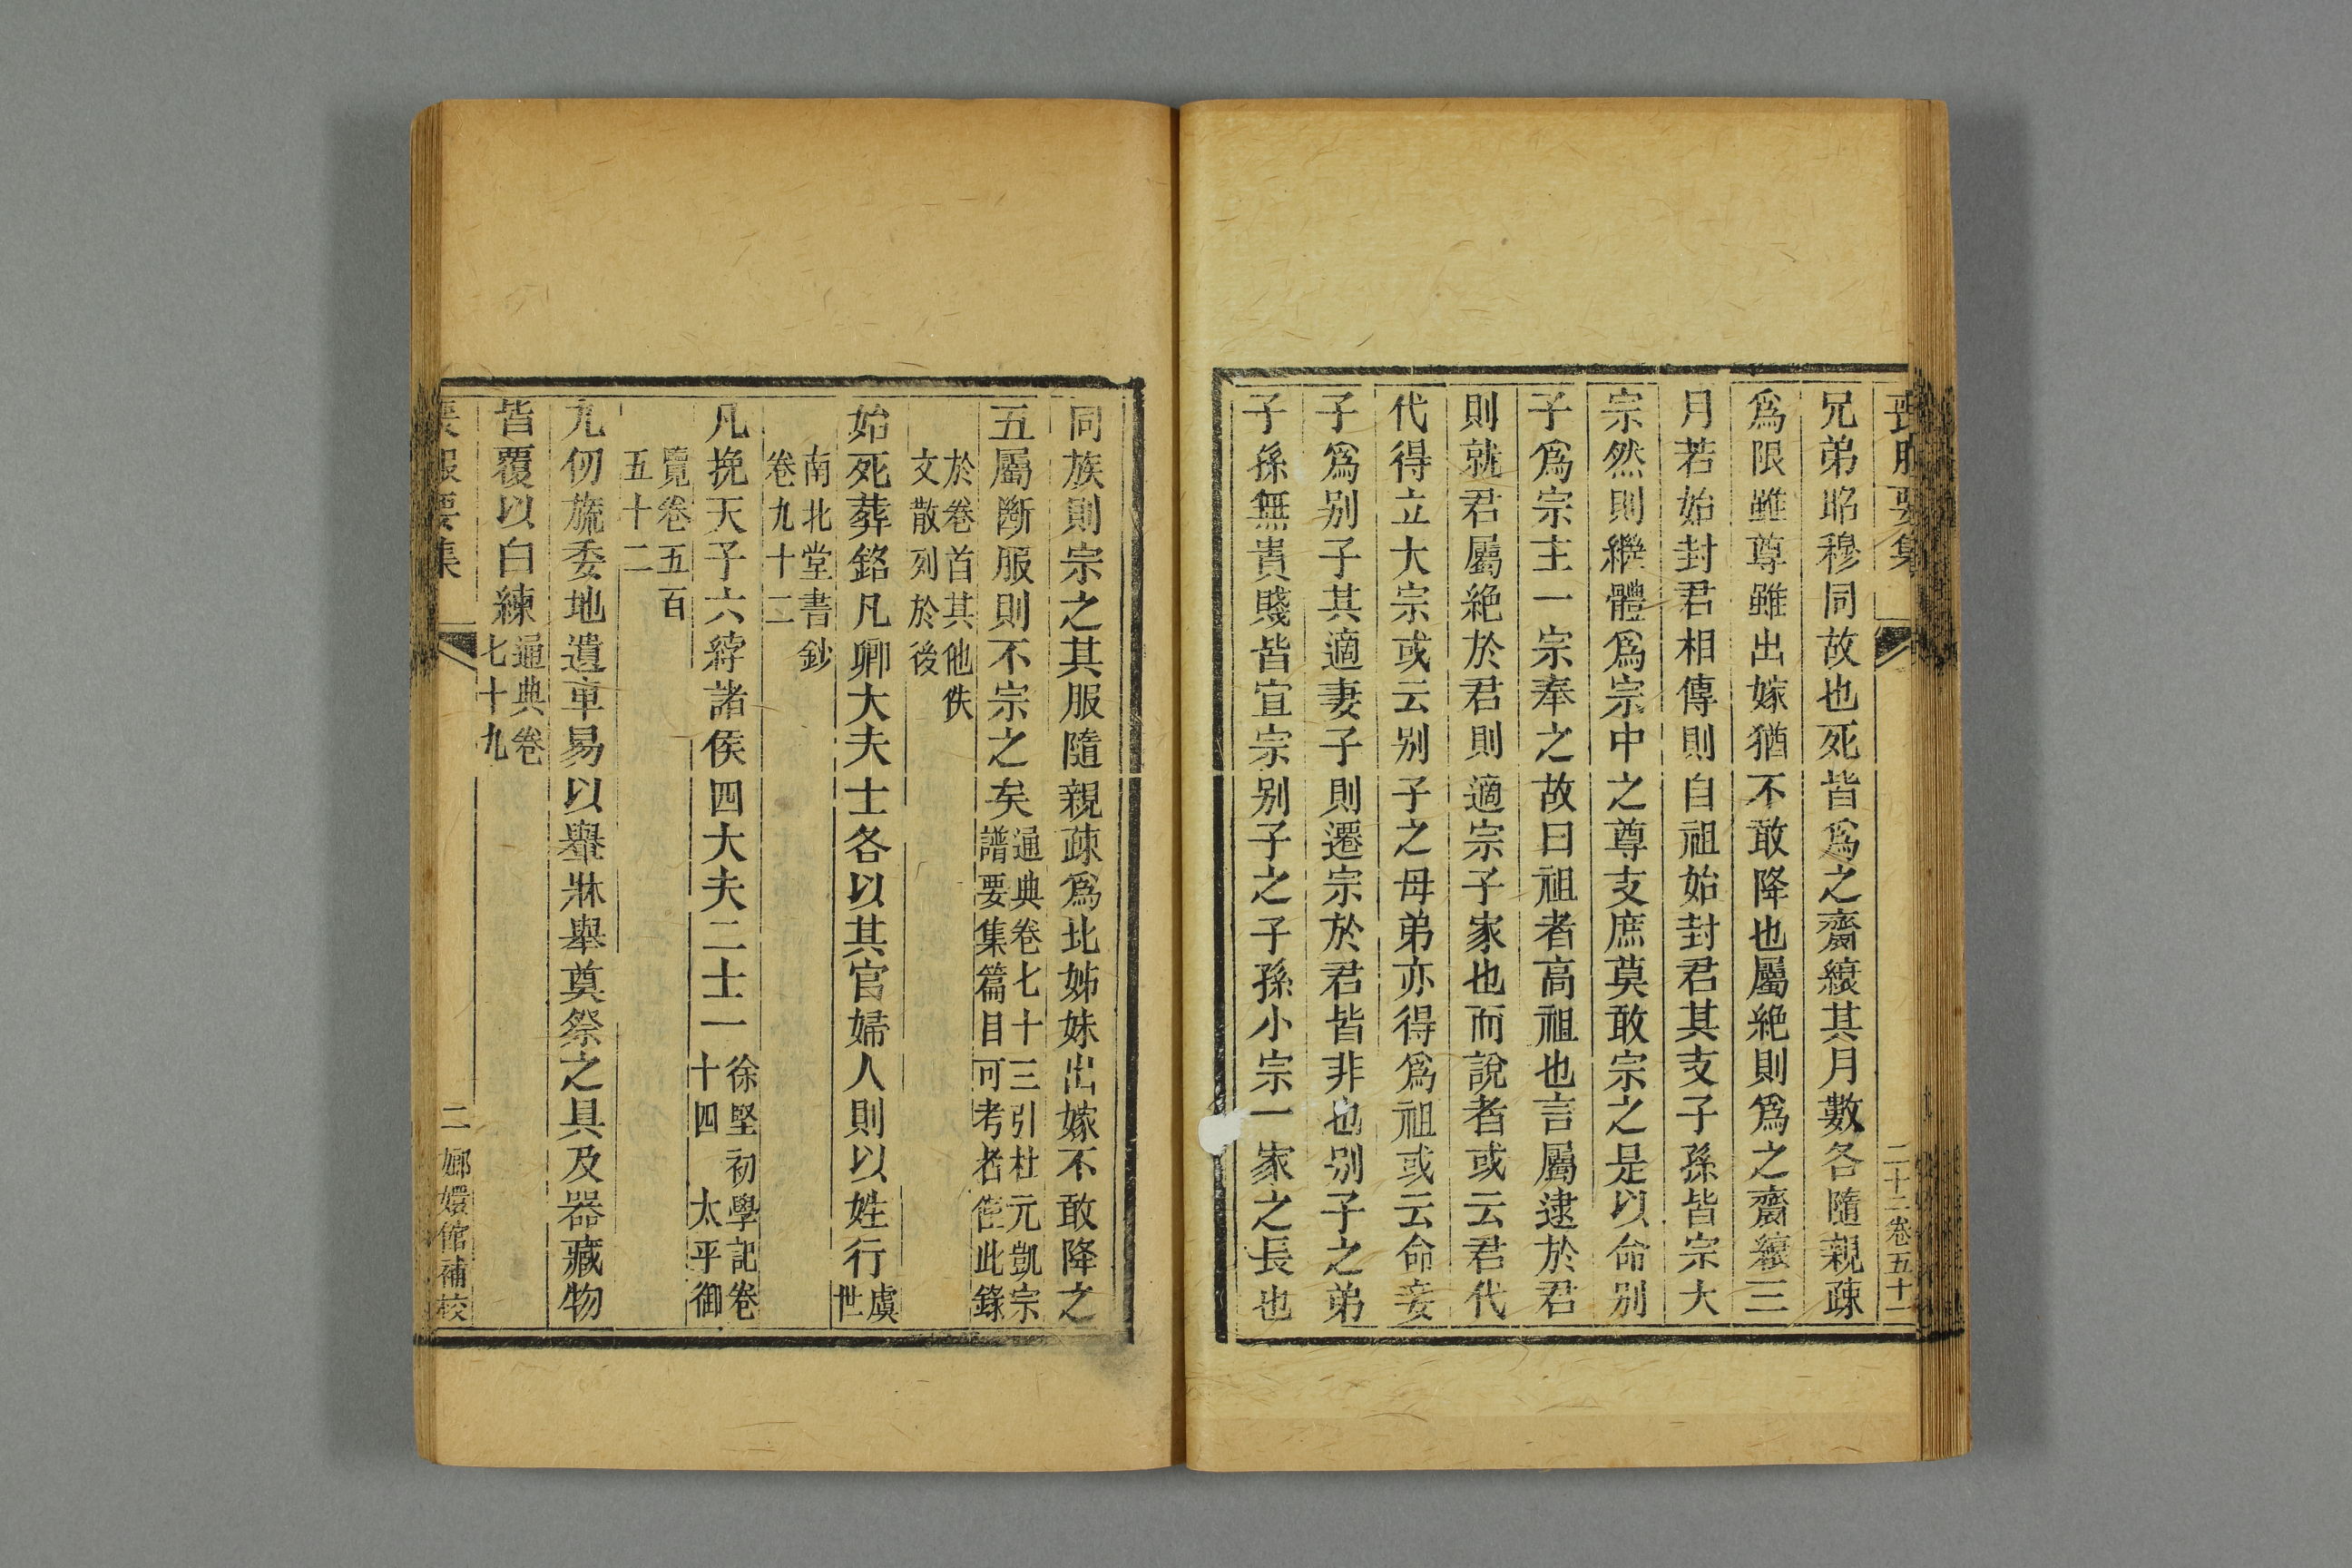 喪服要集
二十二卷五十一
兄弟昭穆同故也死皆爲之齊縗其月數各隨親疎
爲限雖尊雖出嫁猶不敢降也屬絶則爲之齊縗三
月若始封君相傳則自祖始封君其支子孫皆宗大
宗然則繼體爲宗中之尊支庶莫敢宗之是以命别
子爲宗主一宗奉之故曰祖者高祖也言屬逮於君
則就君屬絶於君則適宗子家也而說者或云君代
代得立大宗或云别子之母弟亦得爲祖或云命妾
子爲别子其適妻子則遷宗於君皆非也别子之弟
子孫無貴賤皆宜宗别子之子孫小宗一家之長也
同族則宗之其服隨親疎爲比姊妹出嫁不敢降之
五屬斷服則不宗之矣通典卷七十三引杜元凱宗
譜要集篇目可考者僅此錄
於卷首其他佚
文散列於後
始死葬銘凡卿大夫士各以其官婦人則以姓行虞
世
南北堂書鈔
卷九十二
凡挽天子六綍諸侯四大夫二士一徐堅初學記卷
十四 太平御
覽卷五百
五十二
九仞旒委地遺車易以轝牀舉奠祭之具及器藏物
皆覆以白練通典卷
七十九
喪服要集
二
嫏嬛館補校